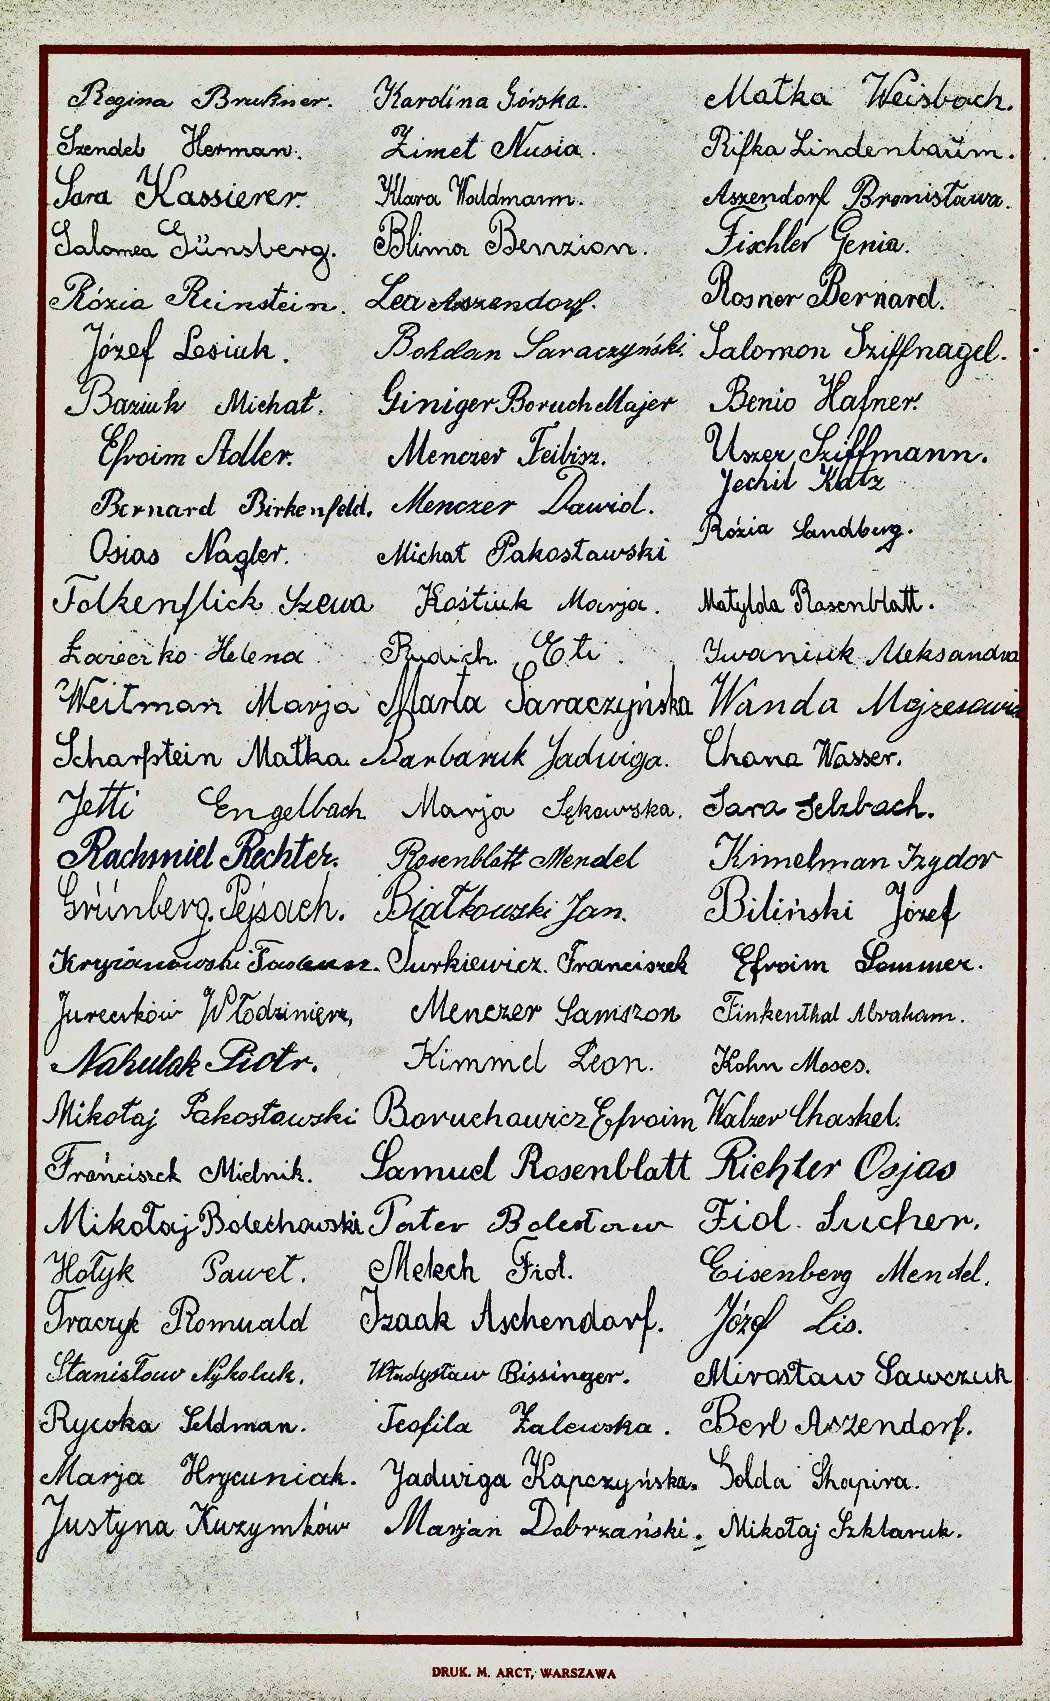 Regina Brukner.
Szendel Herman.
Sara Kassierer.
Salomea Günsberg.
Rózia Reinstein.
Józef Lesiuk.
Baziuk Michał.
Efroim Adler.
Bernard Birkenfeld.
Osias Nagler.
Folkenflick Szewa
Helena
Weitman Marja
Scharfstein Małka.
Jetti Engelbach
Rachmiel Rechter.
Grünberg Pejsach.
Kryzanowski
Włodzimierz,
Nahulak Piotr.
Mikołaj Pakosławski
Franciszek Mielnik.
Mikołaj Bolechowski
Hołyk Paweł.
Traczyk Romuald
Stanisław Nykoluk.
Rywka Feldman.
Marja Hrycuniak.
Justyna Kuzymków
Karolina Górska.
Zimet Nusia.
Klara Waldmann.
Blima Benzion.
Lea Aszendorf.
Bohdan Saraczyński.
Giniger Boruch Majer
Menczer Feibisz.
Menczer Dawid.
Michał Pakosławski
Kośtiuk Marja.
Rudich Eti.
Marta Saraczyńska
Barbaruk Jadwiga.
Marja Sękowska.
Rosenblatt Mendel
Białkowski Jan.
Turkiewicz. Franciszek
Menczer Samszon
Kimmel Leon.
Boruchowicz Efroim
Samuel Rosenblatt
Pater Bolesław
Melech Fid.
Izaak Aschendorf.
Władysław Bissinger.
Teofila Zalewska.
Jadwiga Kapczyńska.
Marjan Dobrzański.
Małka Weisbach.
Rifka Lindenbaum.
Aszendorf Bronisława.
Fischler Genia.
Rosner Bernard.
Salomon Sziffnagel.
Benio Hafner.
Uszer Sziffmann.
Jechil Katz
Rózia Sandberg.
Matylda Rosenblatt.
Iwaniuk Aleksandra
Wanda Mojzesowicz
Chana Wasser.
Sara Selzbach.
Kimelman Izydor
Biliński Józef
Efroim Sommer.
Finkenthal Abraham.
Kohn Moses.
Walzer Chaskel.
Richter Osjas
Fid. Sucher.
Eisenberg Mendel.
Józef Lis.
Mirosław Sawczuk
Berl Aszendorf.
Golda Shapira.
Mikołaj Szklaruk.
DRUK. M. ARCT, WARSZAWA